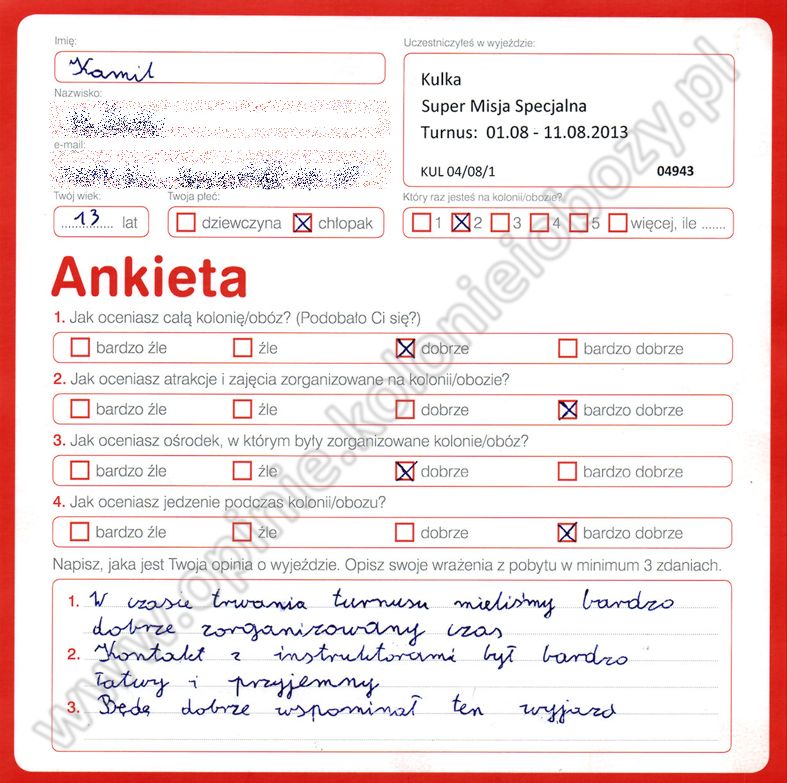 Imię:
Kamil
Uczestniczyłeś w wyjeździe:
Kulka
Super Misja Specjalna
Turnus: 01.08 - 11.08.2013
KUL 04/08/1 04943
Nazwisko:
e-mail:
Twój wiek:
13 lat
Twoja płeć:
dziewczyna chłopak
Który raz jesteś na kolonii/obozie?
1 2 3 4 5 więcej, ile .......
Ankieta
1. Jak oceniasz całą kolonię/obóz? (Podobało Ci się?)
bardzo źle źle dobrze bardzo dobrze
2. Jak oceniasz atrakcje i zajęcia zorganizowane na kolonii/obozie?
bardzo źle źle dobrze bardzo dobrze
3. Jak oceniasz ośrodek, w którym były zorganizowane kolonie/obóz?
bardzo źle źle dobrze bardzo dobrze
4. Jak oceniasz jedzenie podczas kolonii/obozu?
bardzo źle źle dobrze bardzo dobrze
Napisz, jaka jest Twoja opinia o wyjeździe. Opisz swoje wrażenia z pobytu w minimum 3 zdaniach.
1. W czasie trwania turnusu mieliśmy bardzo
dobrze zorganizowany czas
2. Kontakt z instruktorami był bardzo
łatwy i przyjemny
3. Będę dobrze wspominał ten wyjazd
www.opinie.kolonieiobozy.pl